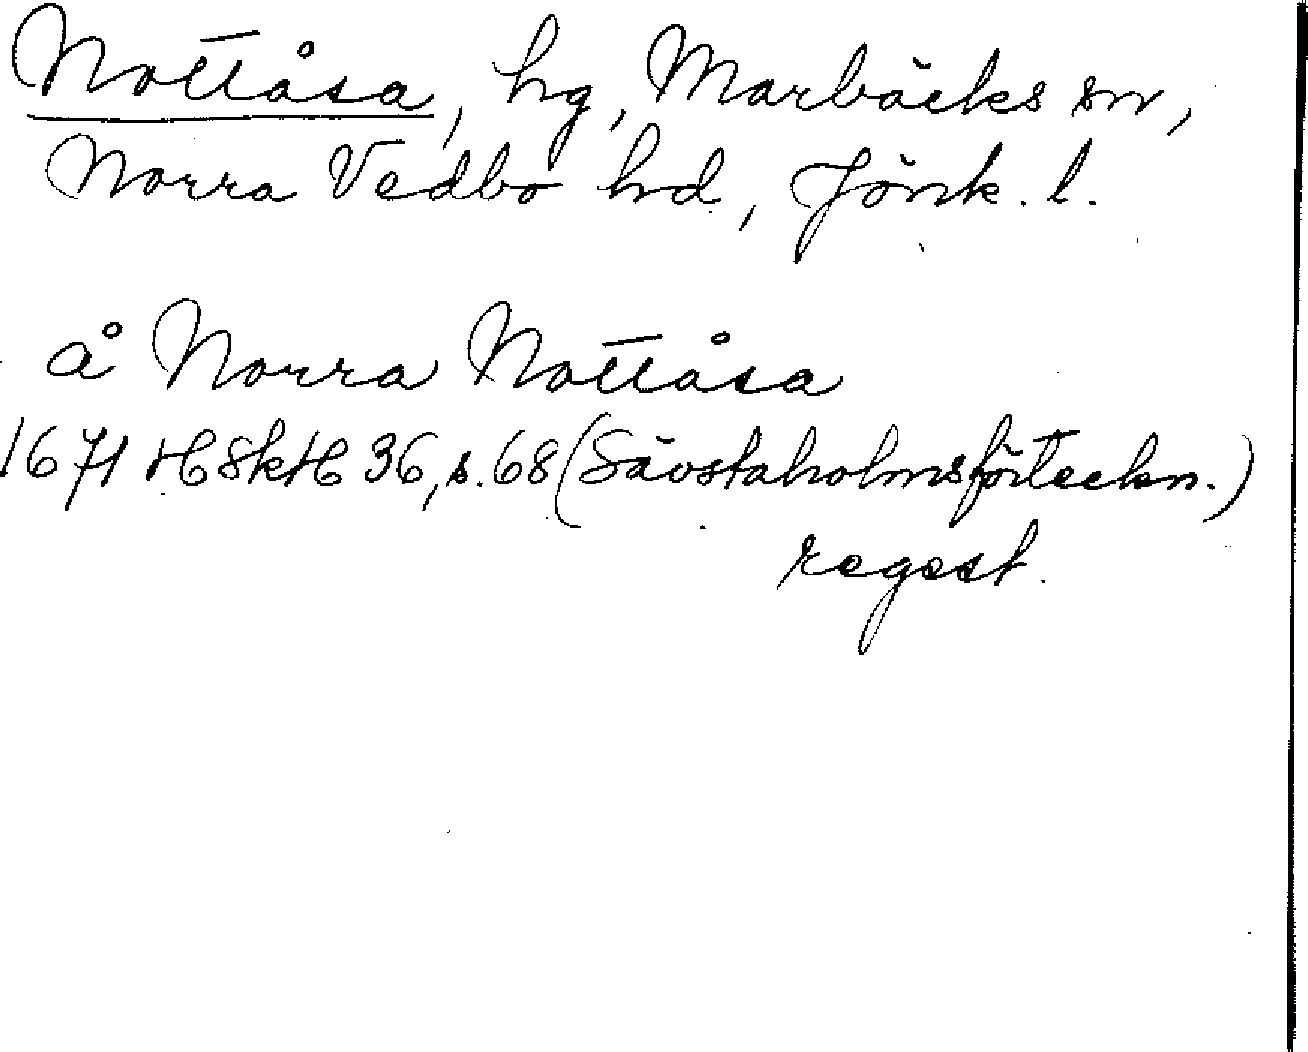 Nottåsa, hg, Marbäcks sn,
Norra Vedbo hd, Jönk. l.
å Norra Nottåsa
1671 HSkH 36, s. 68 (Sävstaholmsförteckn.)
regest.